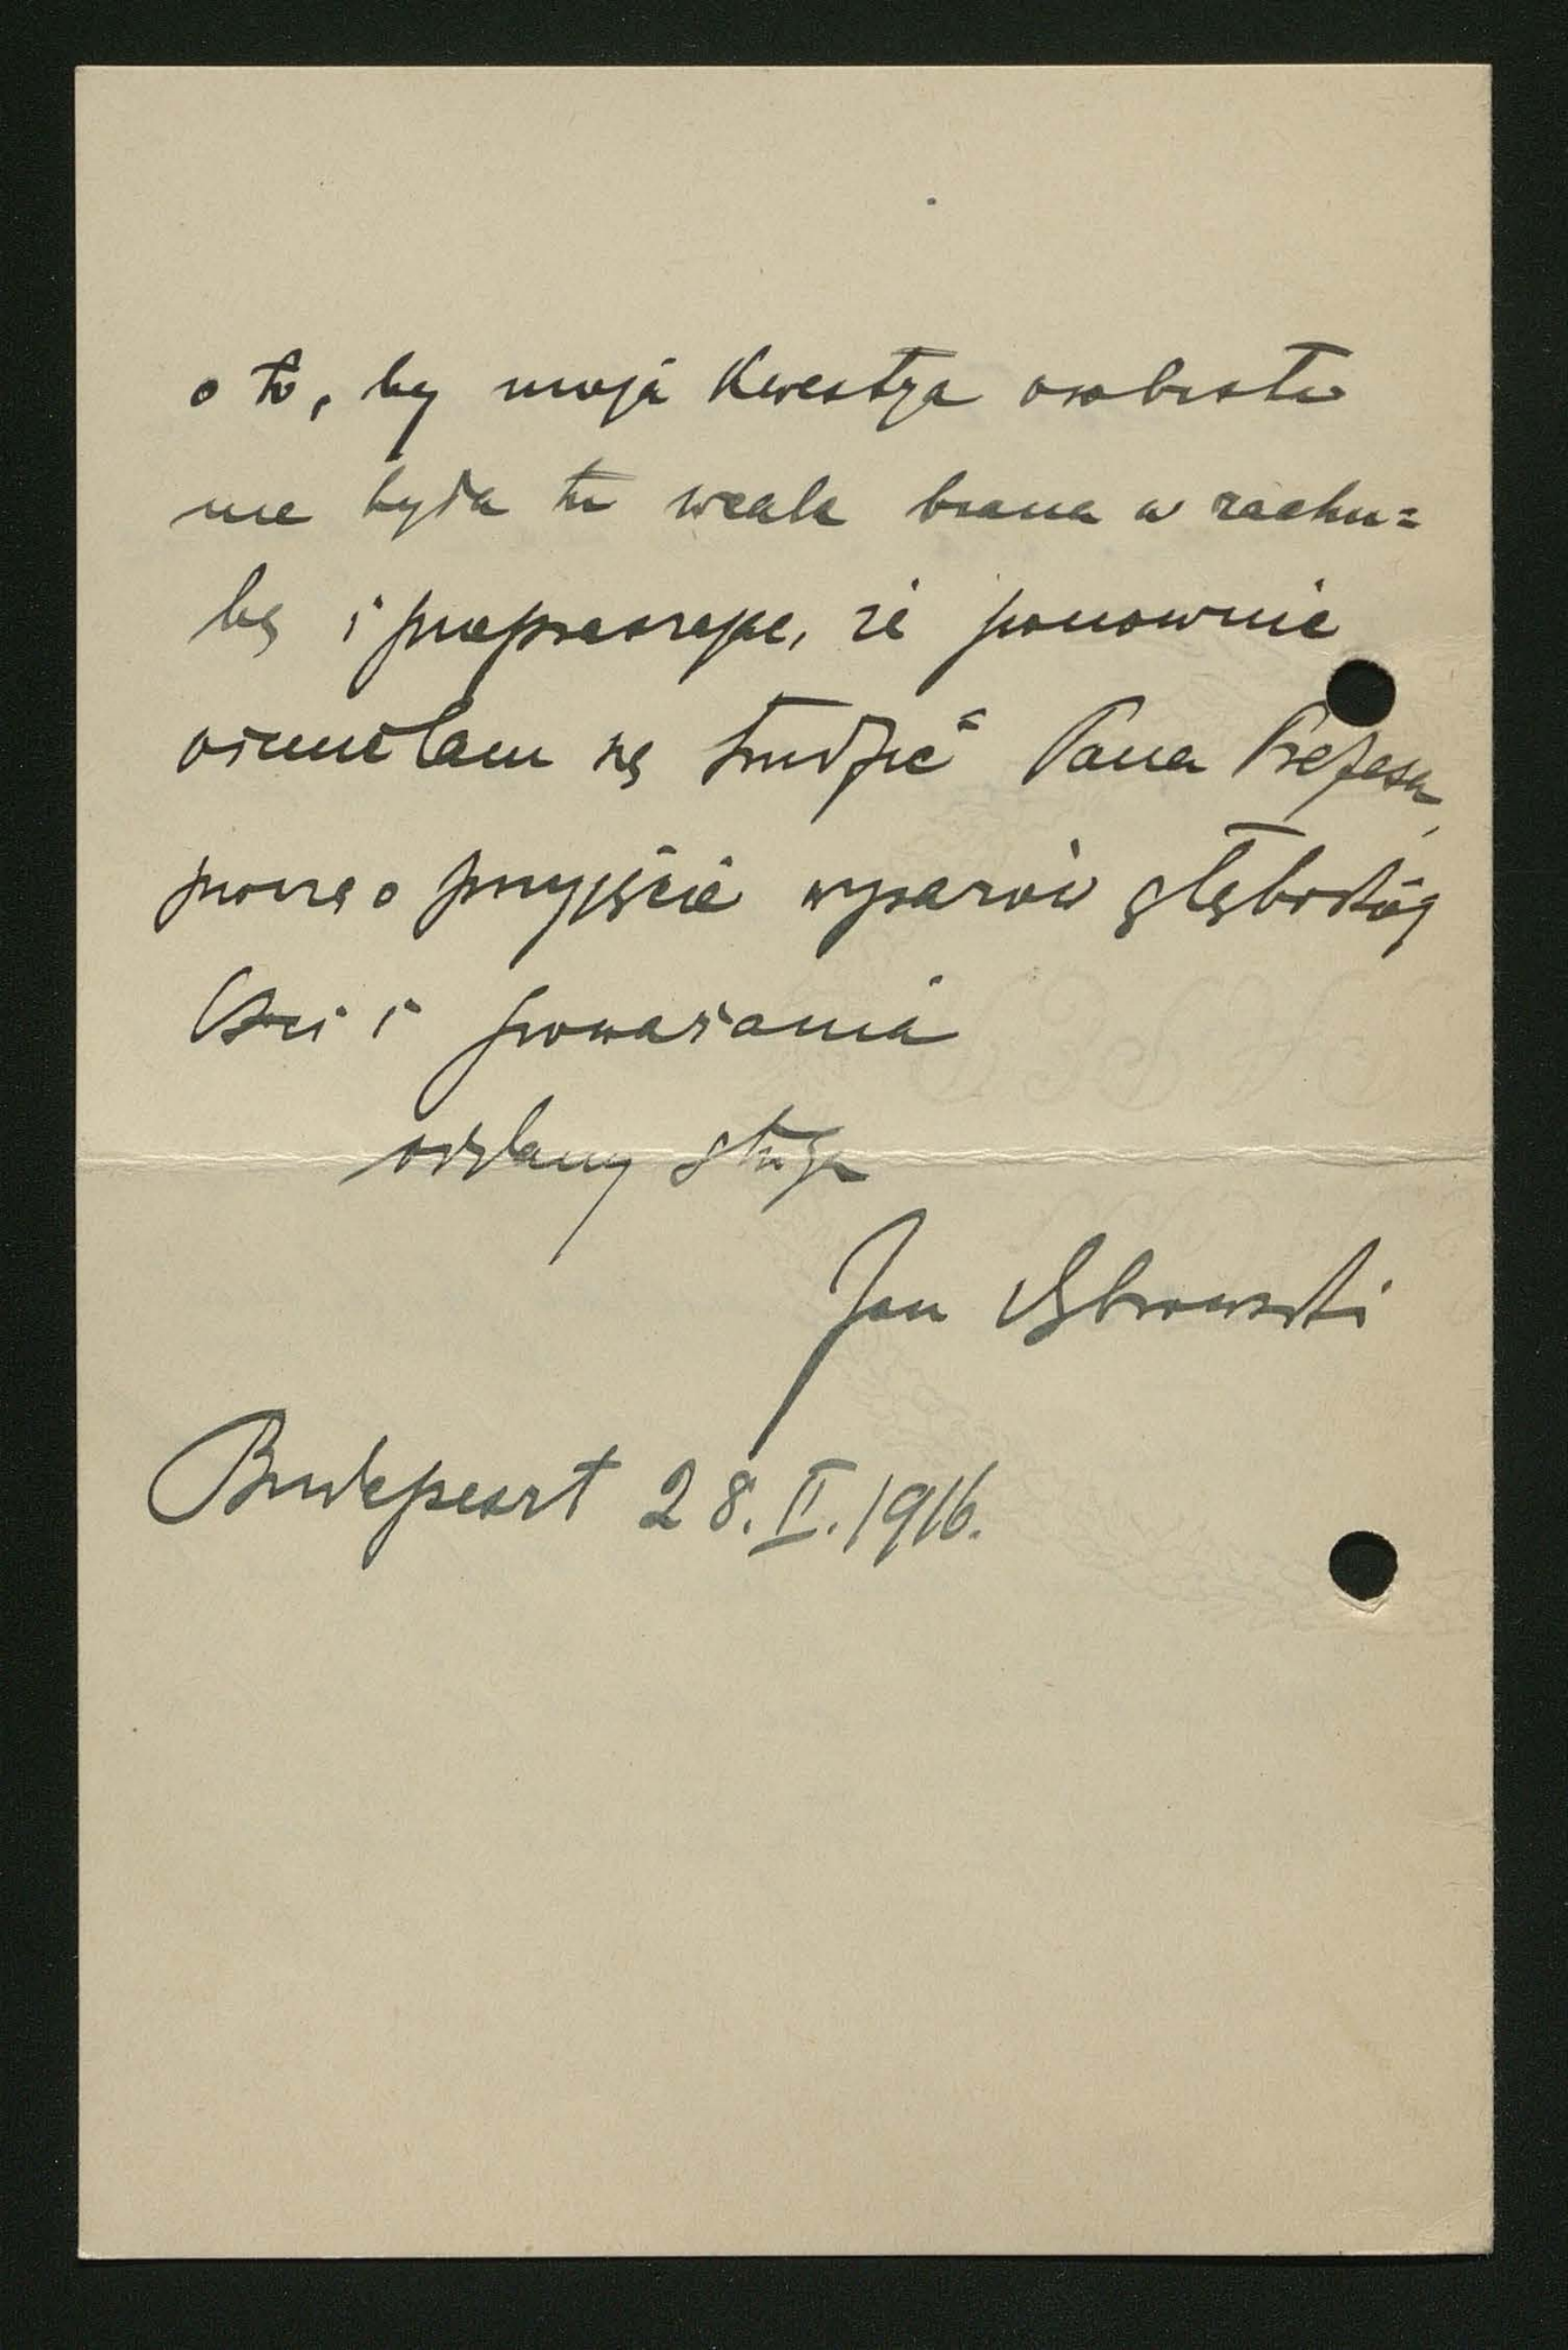 o to, by moja kwestya osobista
nie była tu wcale brana w rachu=
bę i przepraszając, że ponownie
ośmieliłem się trudzić Pana Prezesa,
proszę o przyjęcie wyrazów głębokiej
czci i poważania
oddany sługa
Jan Dąbrowski
Budapeszt 28.II.1916.